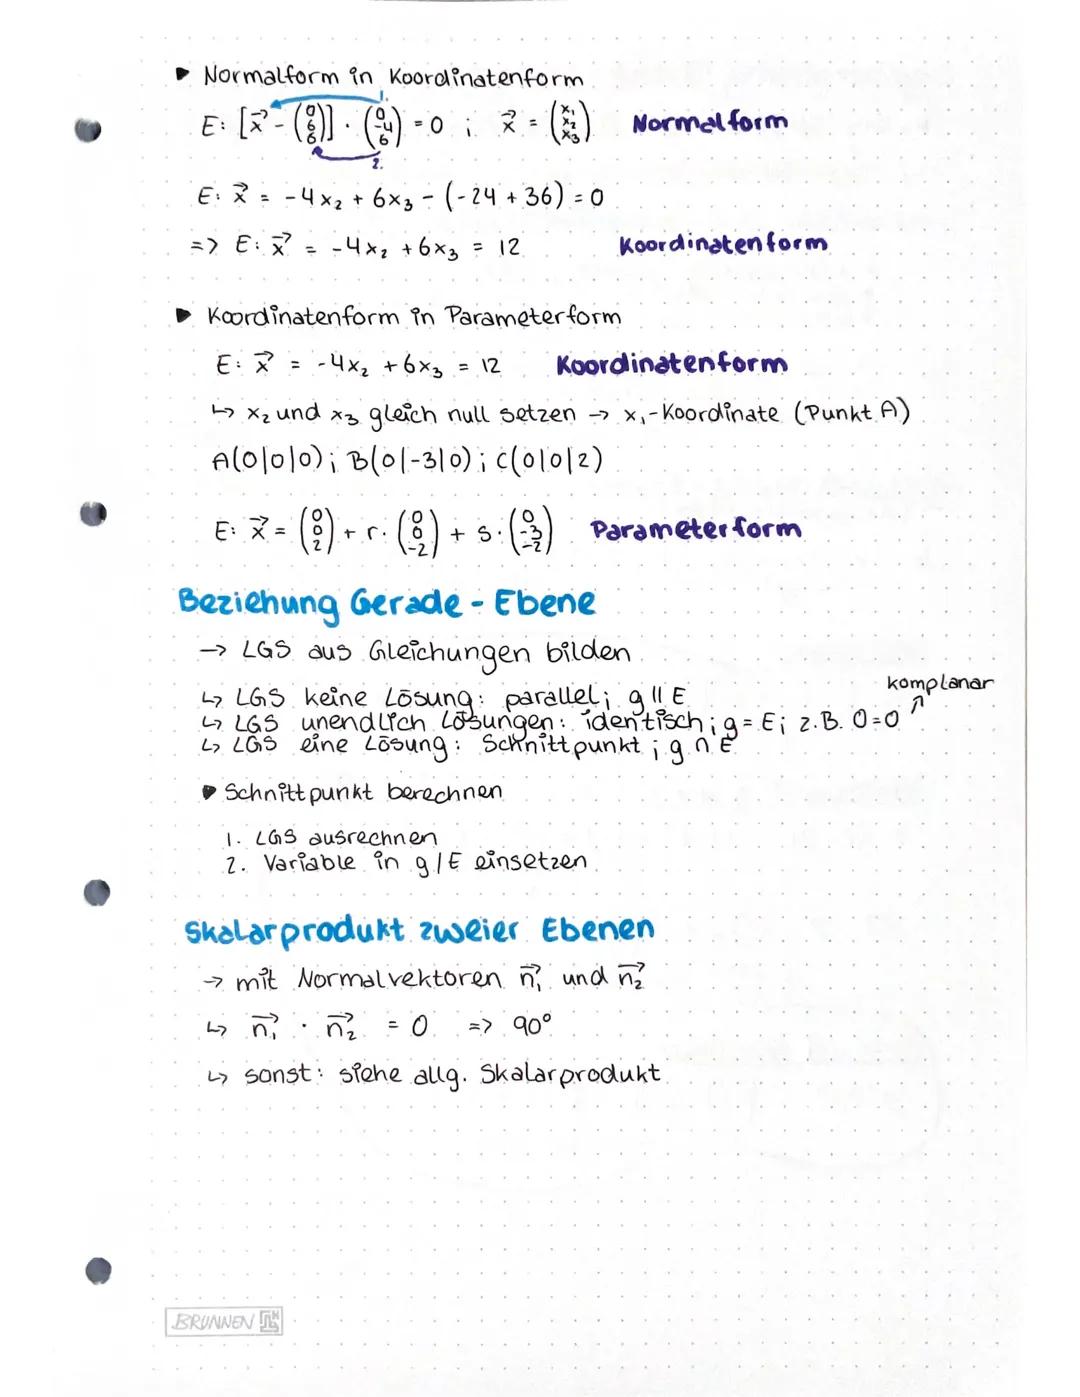 ▶ Normalform in Koordinatenform
1.
E: [x⃗ - (0 6 6)] · (0 -4 6) = 0 ; x⃗ = (x₁ x₂ x₃) Normalform
2.
E: x⃗ = -4x₂ + 6x₃ - (-24 + 36) = 0
=> E: x⃗ = -4x₂ + 6x₃ = 12 Koordinatenform
▶ Koordinatenform in Parameterform
E: x⃗ = -4x₂ + 6x₃ = 12 Koordinatenform
↳ x₂ und x₃ gleich null setzen → x₁-Koordinate (Punkt A)
A(0|0|0); B(0|-3|0); C(0|0|2)
E: x⃗ = (0 0 2) + r · (0 0 -2) + s · (0 -3 -2) Parameterform
Beziehung Gerade - Ebene
→ LGS aus Gleichungen bilden
komplanar
↳ LGS keine Lösung: parallel; g || E
↳ LGS unendlich Lösungen: identisch; g = E; z.B. 0=0 ↗
↳ LGS eine Lösung: Schnittpunkt; g ∩ E
▶ Schnittpunkt berechnen
1. LGS ausrechnen
2. Variable in g/E einsetzen
Skalarprodukt zweier Ebenen
→ mit Normalvektoren n₁⃗ und n₂⃗
↳ n₁⃗ · n₂⃗ = 0 => 90°
↳ sonst: siehe allg. Skalarprodukt
BRUNNEN